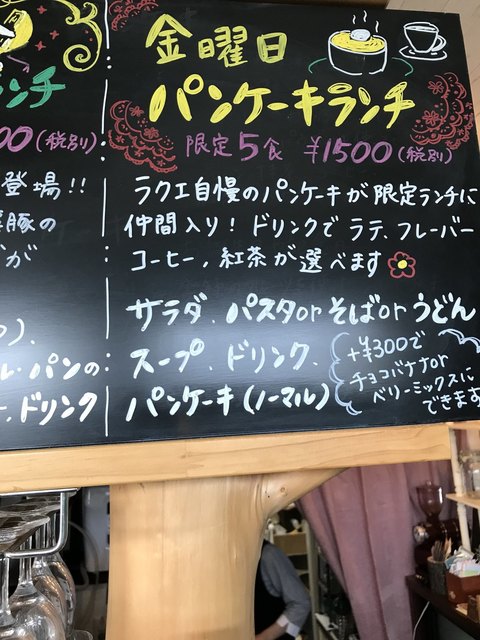 ランチ
00(税別)
登場!!
豚の
が
)、
ル・パンの
、ドリンク
金曜日
パンケーキランチ
限定5食 ¥1500(税別)
ラクエ自慢のパンケーキが限定ランチに
仲間入り!ドリンクでラテ、フレーバー
コーヒー、紅茶が選べます
サラダ、パスタorそばorうどん
スープ、ドリンク、
パンケーキ(ノーマル)
+¥300で
チョコバナナor
ベリーミックスに
できます